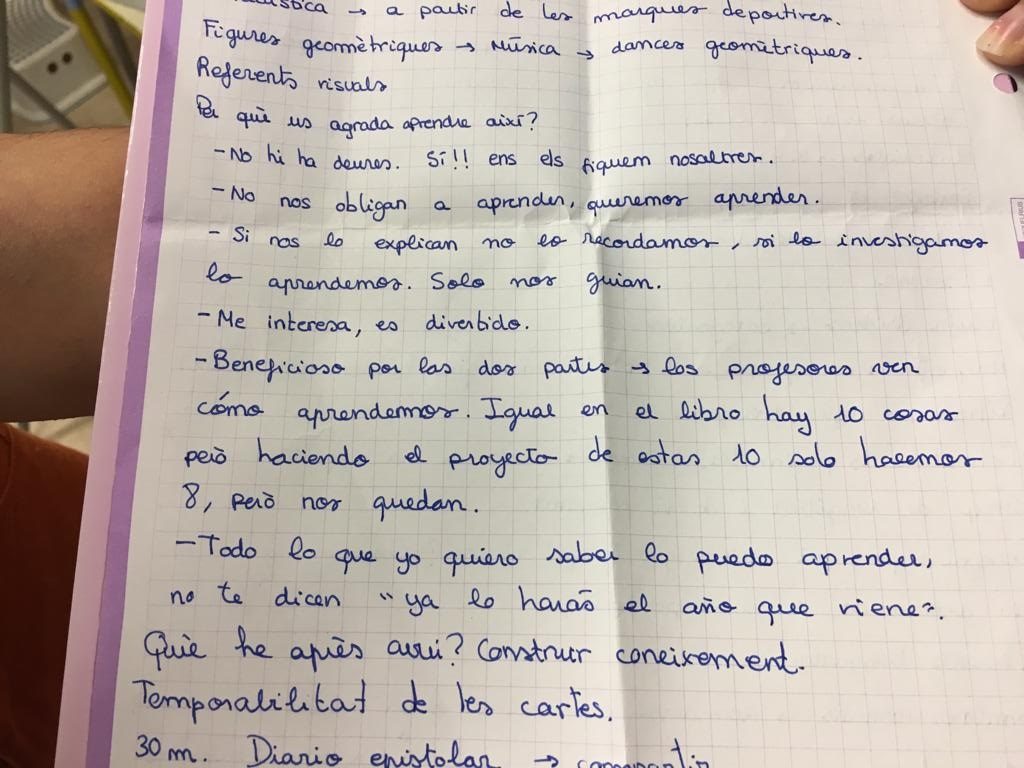 a partir de les marques deportives.
Figures geomètriques → Música → dances geomètriques.
Referents visuals
Per què us agrada aprendre així?
- No hi ha deures. Sí!! ens els fiquem nosaltres.
- No nos obligan a aprender, queremos aprender.
- Si nos lo explican no lo recordamos, si lo investigamos
lo aprendemos. Solo nos guian.
- Me interesa, es divertido.
- Beneficioso por las dos partes → los profesores ven
cómo aprendemos. Igual en el libro hay 10 cosas
però haciendo el proyecto de estas 10 solo hacemos
8, però nos quedan.
- Todo lo que yo quiero saber lo puedo aprender,
no te dicen "ya lo harás el año que viene".
Què he après avui? Construir coneixement.
Temporalitat de les cartes.
30 m. Diario epistolar →